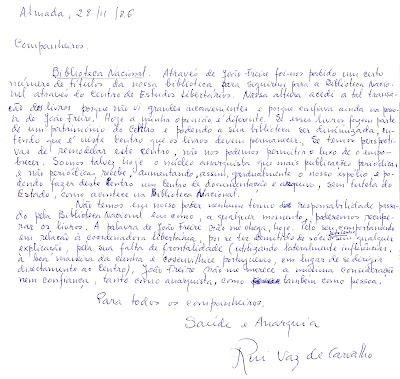 Almada, 28/11/86
Companheiros.
Biblioteca Nacional. Através de João Freire foi-nos pedido um certo
número de títulos da nossa biblioteca para seguirem para a Biblioteca Nacio-
nal através do Centro de Estudos Libertários. Nessa altura acedi a tal transac-
ção dos livros porque não vi grandes inconvenientes e porque confiava na pessoa
de João Freire. Hoje a minha opinião é diferente. Se esses livros fazem parte
de um património do Centro e podendo a sua biblioteca ser dinamizada, en-
tendo que é neste Centro que os livros devem permanecer. Se temos perspecti-
vas de remodelar este Centro, não nos podemos permitir o luxo de o empo-
brecer. Somos talvez hoje o núcleo anarquista que mais publicações periódicas
e não periódicas recebe, aumentando, assim, gradualmente o nosso espólio e po-
dendo fazer deste Centro um centro de documentação e arquivo, sem tutela do
Estado, como acontece na Biblioteca Nacional.
Não temos em nosso poder nenhum termo de responsabilidade passa-
do pela Biblioteca Nacional em como, a qualquer momento, poderemos recupe-
rar os livros. A palavra de João Freire não me chega, hoje. Pelo seu comportamento
em relação à coordenadora libertária, por se ter demitido de sócio sem qualquer
explicação, pela sua falta de frontalidade (utilizando lateralmente influências,
à boa maneira da cunha e coscuvilhice portuguesas, em lugar de se dirigir
directamente ao Centro), João Freire não me merece a mínima consideração
nem confiança, tanto como anarquista, como também como pessoa.
Para todos os companheiros.
Saúde e Anarquia
Rui Vaz de Carvalho